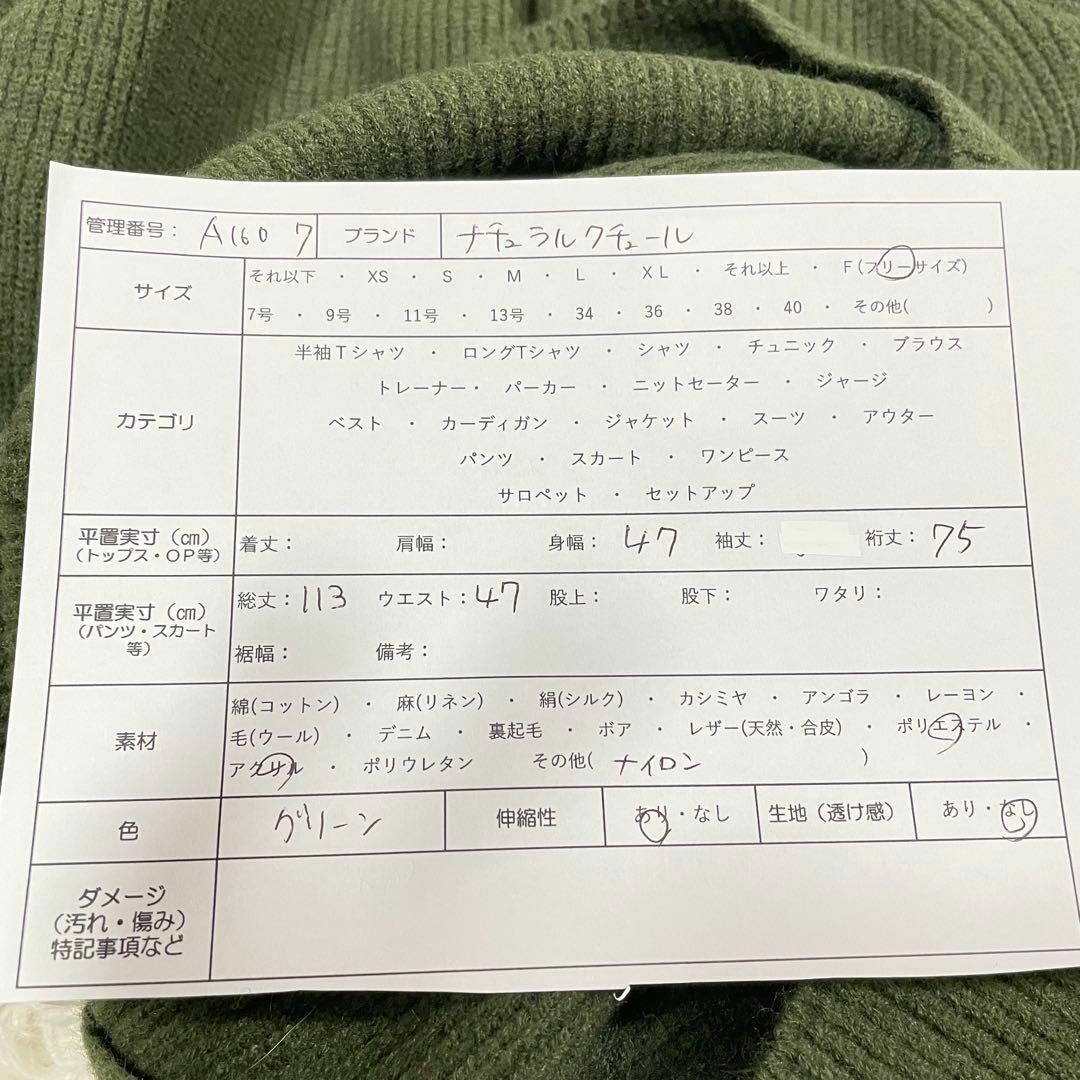 管理番号： A1607 ブランド ナチュラルクチュール
サイズ それ以下 ・ XS ・ S ・ M ・ L ・ XL ・ それ以上 ・ F(フリーサイズ)
7号 ・ 9号 ・ 11号 ・ 13号 ・ 34 ・ 36 ・ 38 ・ 40 ・ その他( )
カテゴリ
半袖Tシャツ ・ ロングTシャツ ・ シャツ ・ チュニック ・ ブラウス
トレーナー・ パーカー ・ ニットセーター ・ ジャージ
ベスト ・ カーディガン ・ ジャケット ・ スーツ ・ アウター
パンツ ・ スカート ・ ワンピース
サロペット ・ セットアップ
平置実寸（㎝）
（トップス・OP等）
着丈： 肩幅： 身幅： 47 袖丈： 裄丈： 75
平置実寸（㎝）
（パンツ・スカート
等）
総丈：113 ウエスト：47 股上： 股下： ワタリ：
裾幅： 備考：
素材
綿(コットン) ・ 麻(リネン) ・ 絹(シルク) ・ カシミヤ ・ アンゴラ ・ レーヨン ・
毛(ウール) ・ デニム ・ 裏起毛 ・ ボア ・ レザー(天然・合皮) ・ ポリエステル ・
アクリル ・ ポリウレタン その他( ナイロン )
色 グリーン 伸縮性 あり・なし 生地（透け感） あり・なし
ダメージ
（汚れ・傷み）
特記事項など